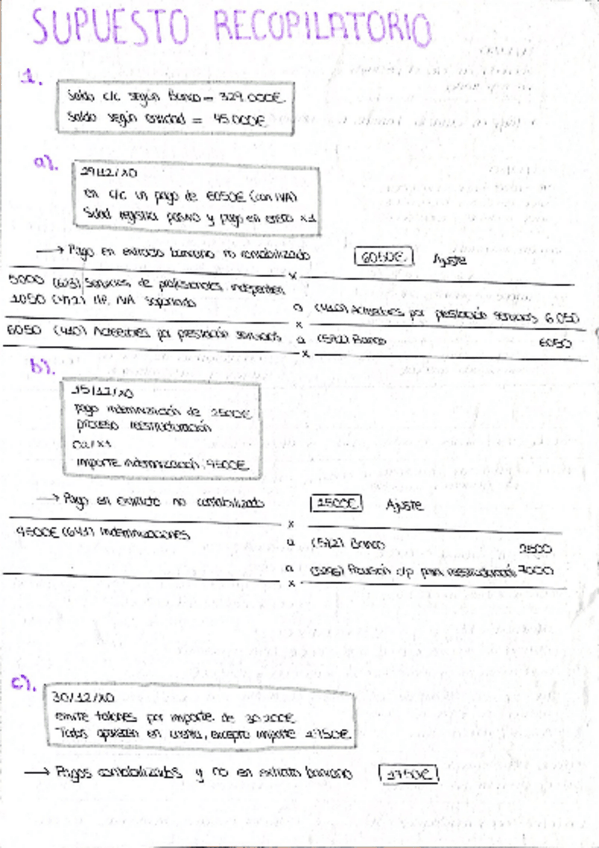 SUPUESTO RECOPILATORIO
1.
Saldo c/c según Banco = 329.000€
Saldo según entidad = 45.000€
a).
29/12/X0
en c/c un pago de 6050€ (con IVA)
Sdad registra pasivo y pago en enero X1
→ Pago en extracto bancario no contabilizado 6050€ Ajuste
x
5000 (623) Servicios de profesionales independien.
1050 (472) H.P. IVA soportado
a (410) Acreedores por prestación servicios 6.050
x
6050 (410) Acreedores por prestación servicios a (572) Banco 6050
x
b).
15/12/X0
pago indemnización de 2500€
proceso reestructuración
importe indemnización: 9500€
→ Pago en extracto no contabilizado 2500€ Ajuste
x
9500€ (641) Indemnizaciones
a (572) Banco 2500
a (5296) Provisión c/p para reestructuración 7000
x
c).
30/12/X0
emite talones por importe de 30.200€
Todos aparecen en cuenta, excepto importe 1750€
→ Pagos contabilizados y no en extracto bancario 1750€